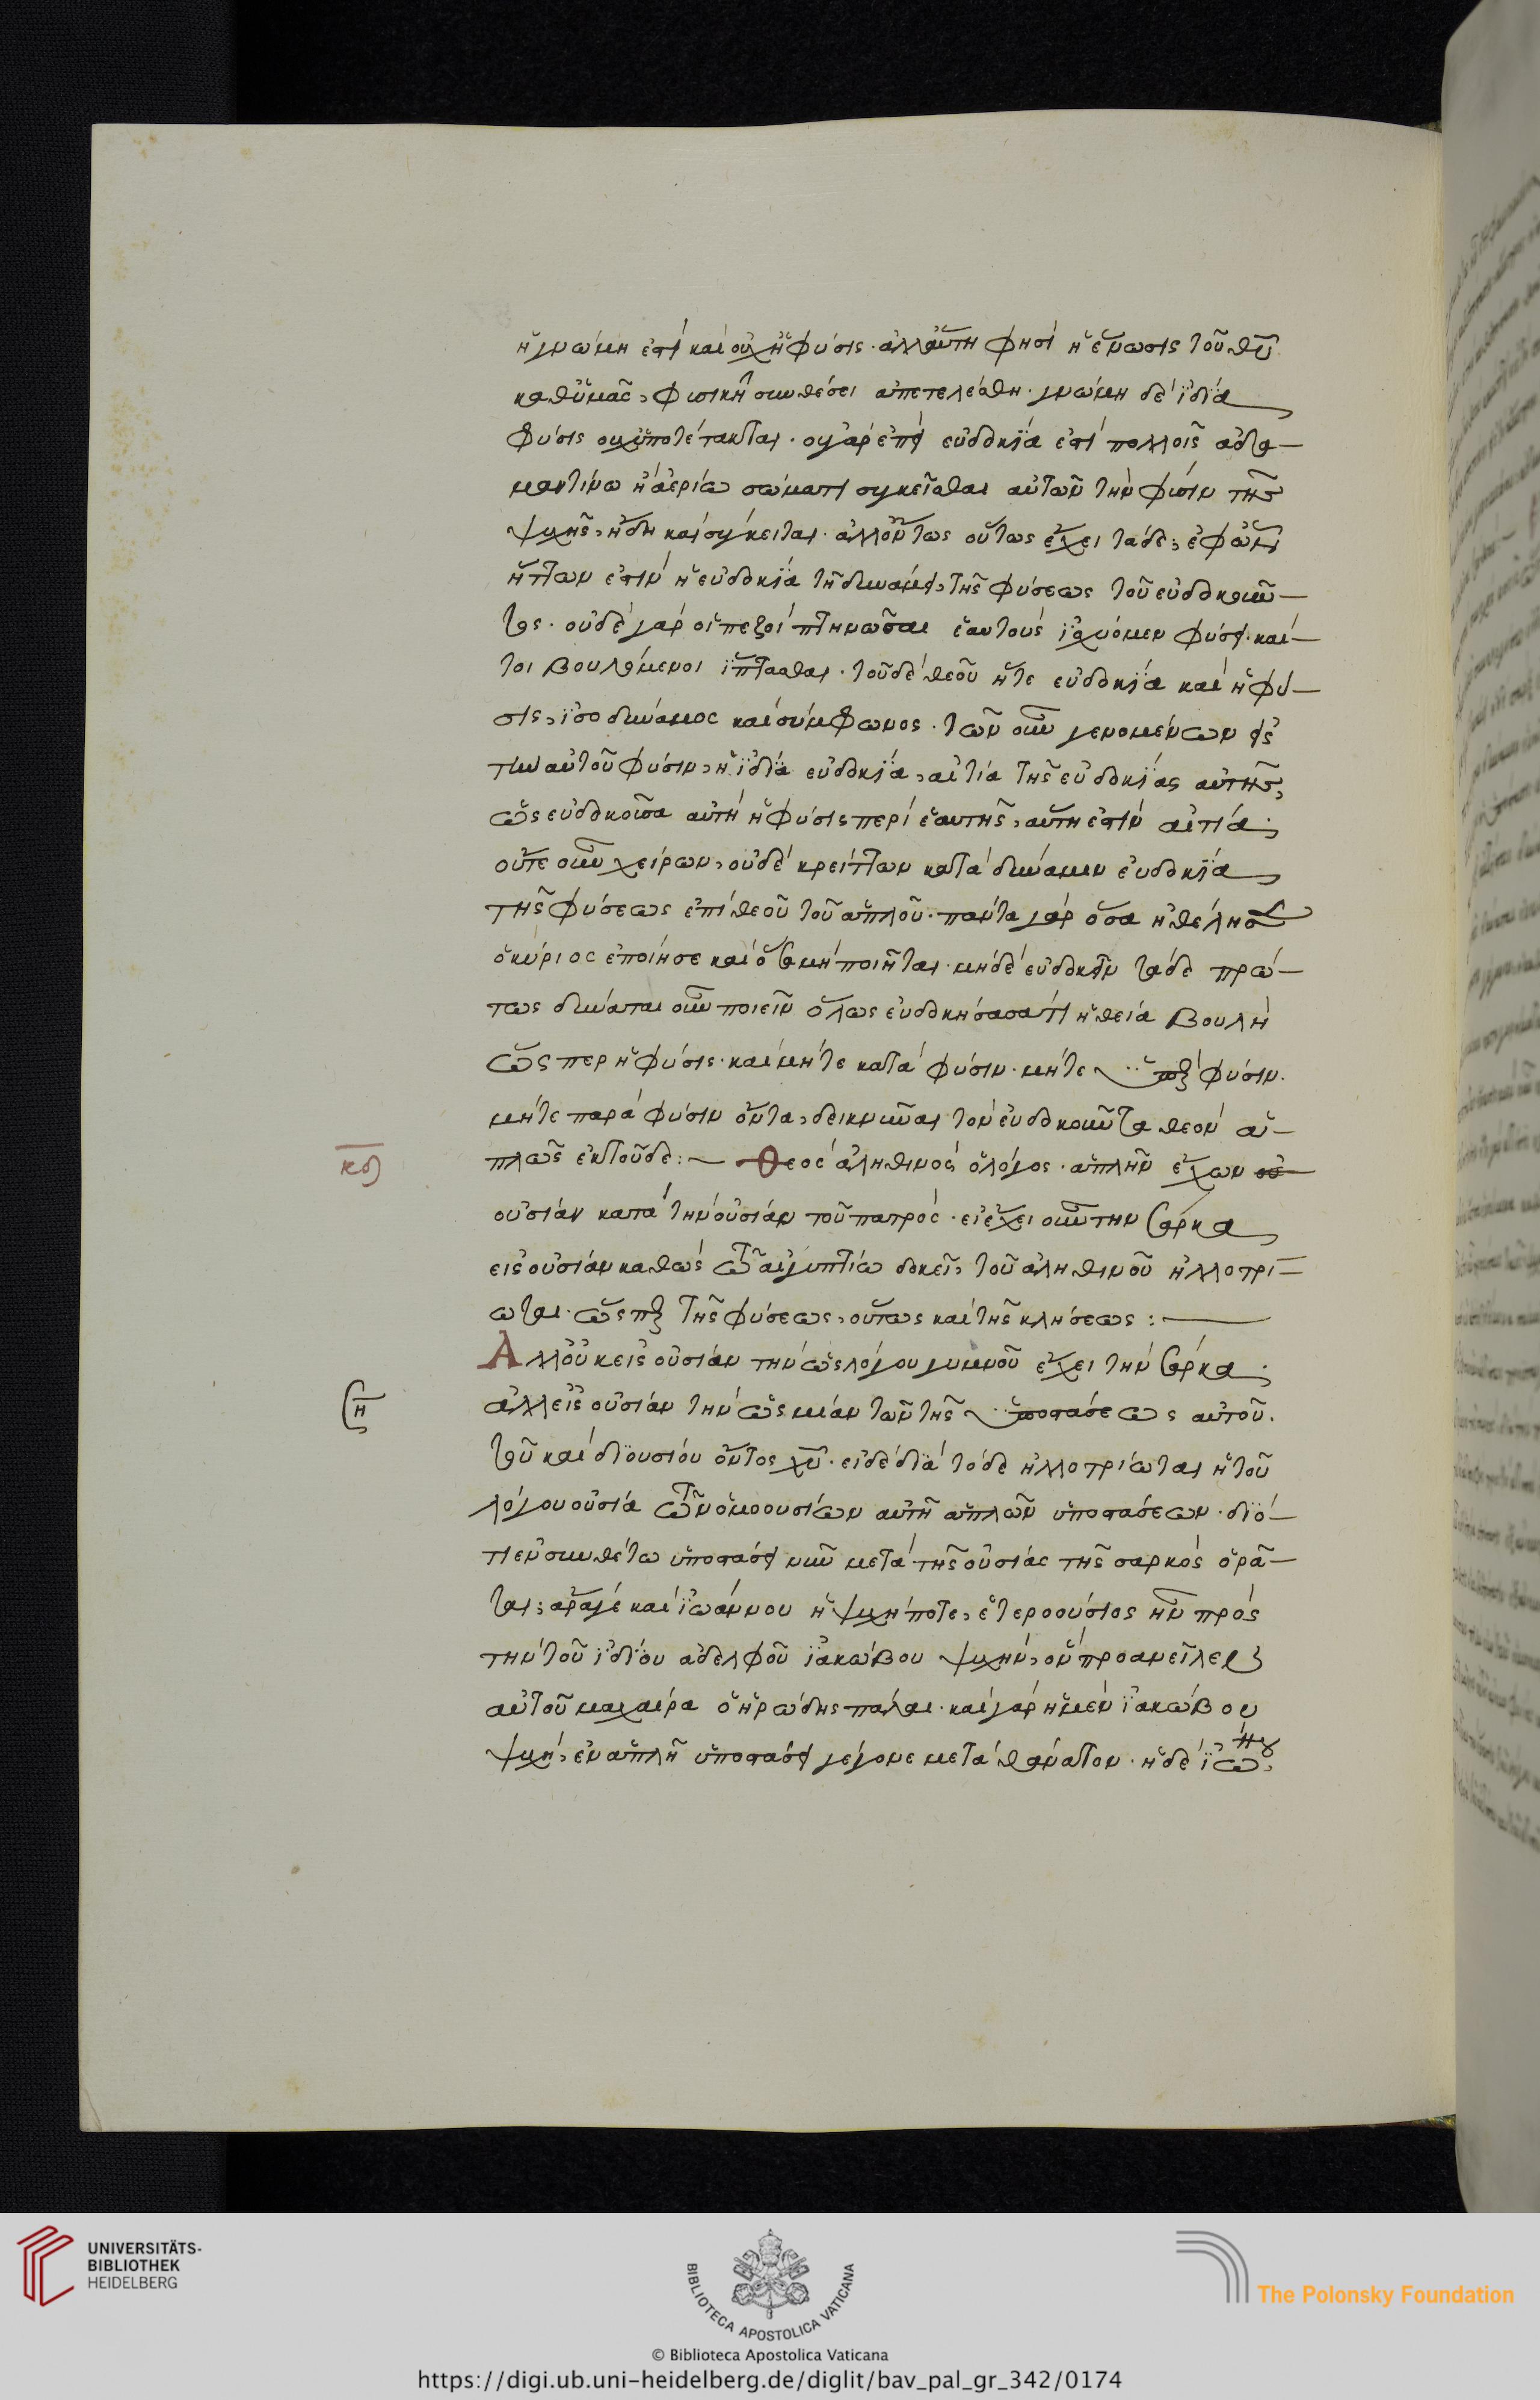 ἡ γνώμη ἐστὶ καὶ οὐχ ἡ φύσις. ἀλλ' αὕτη φησὶ ἡ ἕνωσις τοῦ θυ
καθ' ὑμᾶς, φυσικῆ συνθέσει ἀπετελέσθη. γνώμη δὲ ἰδία
φύσις οὐχ ὑποτέτακται. οὐ γὰρ ἐπεὶ εὐδοκία ἐστὶ πολλοῖς ἀδα-
μαντίνω ἢ ἀερίω σώματι συγκεῖσθαι αὐτῶν τὴν φύσιν τῆς
ψυχῆς, ἤδη καὶ σύγκειται. ἀλλ' ὄντως οὕτως ἔχει τάδε, ἐφ' ὧν
ἥττων ἐστὶν ἡ εὐδοκία τῆ δυνάμει, τῆς φύσεως τοῦ εὐδοκοῦν-
τος. οὐδὲ γὰρ οἱ πεζοὶ πτηνῶσαι ἑαυτοὺς ἰσχύομεν φύσει. καί-
τοι βουλόμενοι ἵπτασθαι. τοῦ δὲ θεοῦ ἥτε εὐδοκία καὶ ἡ φύ-
σις, ἰσοδύναμος καὶ σύμφωνος. τῶν οὖν γενομένων εἰς
τὴν αὐτοῦ φύσιν, ἡ ἰδία εὐδοκία, αἰτία τῆς εὐδοκίας αὐτῆς,
ὡς εὐδοκοῦσα αὐτὴ ἡ φύσις περὶ ἑαυτῆς, αὕτη ἐστὶν αἰτία.
οὔτε οὖν χείρων, οὐδὲ κρείττων κατὰ δύναμιν εὐδοκία
τῆς φύσεως ἐπὶ θεοῦ τοῦ ἁπλοῦ. πάντα γὰρ ὅσα ἠθέλησεν
ὁ κύριος ἐποίησε καὶ ὅσα μὴ ποιῆται. μηδὲ εὐδοκεῖν τάδε πρώ-
τως δύναται οὖν ποιεῖν ὅλως εὐδοκήσασά τι ἡ θεία βουλὴ
ὥσπερ ἡ φύσις. καὶ μήτε κατὰ φύσιν. μήτε ὑπὲρ φύσιν.
μήτε παρὰ φύσιν ὄντα, δεικνῦσαι τὸν εὐδοκοῦντα θεὸν ἁ-
πλῶς ἐκ τοῦδε:— Θεὸς ἀληθινὸς ὁ λόγος. ἁπλῆν ἔχων οὐ
κδ
οὐσίαν κατὰ τὴν οὐσίαν τοῦ πατρός. εἰ ἔχει οὖν τὴν σάρκα
εἰς οὐσίαν καθὼς τῶ αἰγυπτίω δοκεῖ, τοῦ ἀληθινοῦ ἠλλοτρί-
ωται. ὥσπερ τῆς φύσεως, οὕτως καὶ τῆς κλήσεως:—
Ἀλλ' οὐκ εἰς οὐσίαν τὴν ὡς λόγου γυμνοῦ ἔχει τὴν σάρκα.
ἀλλ' εἰς οὐσίαν τὴν ὡς μίαν τῶν τῆς ὑποστάσεως αὐτοῦ.
τοῦ καὶ διουσίου ὄντος χυ. εἰ δὲ διὰ τόδε ἠλλοτρίωται ἡ τοῦ
λόγου οὐσία τῶν ὁμοουσίων αὐτῆ ἁπλῶν ὑποστάσεων. διό-
τι ἐν συνθέτω ὑποστάσει νῦν μετὰ τῆς οὐσίας τῆς σαρκὸς ὁρᾶ-
ται, ἆρά γε καὶ ἰωάννου ἡ ψυχή ποτε, ἑτεροούσιος ἦν πρὸς
τὴν τοῦ ἰδίου ἀδελφοῦ ἰακώβου ψυχήν, ὃν προανεῖλεν
αὐτοῦ μαχαίρα ὁ ἡρώδης πάλαι. καὶ γὰρ ἡ μὲν ἰακώβου
ψυχή, ἐν ἁπλῆ ὑποστάσει γέγονε μετὰ θάνατον. ἡ δὲ ἰω
UNIVERSITÄTS-
BIBLIOTHEK
HEIDELBERG
BIBLIOTECA APOSTOLICA VATICANA
The Polonsky Foundation
© Biblioteca Apostolica Vaticana
https://digi.ub.uni-heidelberg.de/diglit/bav_pal_gr_342/0174